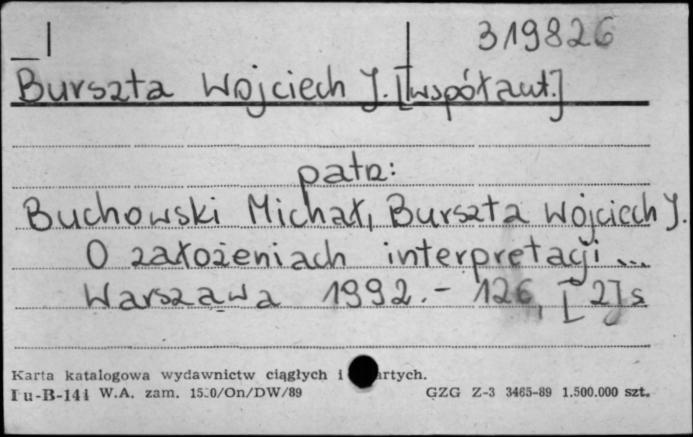 319826
Burszta Wojciech J. [współaut.]
patrz:
Buchowski Michał, Burszta Wojciech J.
O założeniach interpretacji ...
Warszawa 1992.- 126, [2] s
Karta katalogowa wydawnictw ciągłych i
Pu-B-141 W.A. zam. 1520/On/DW/89 GZG Z-3 3465-89 1.500.000 szt.